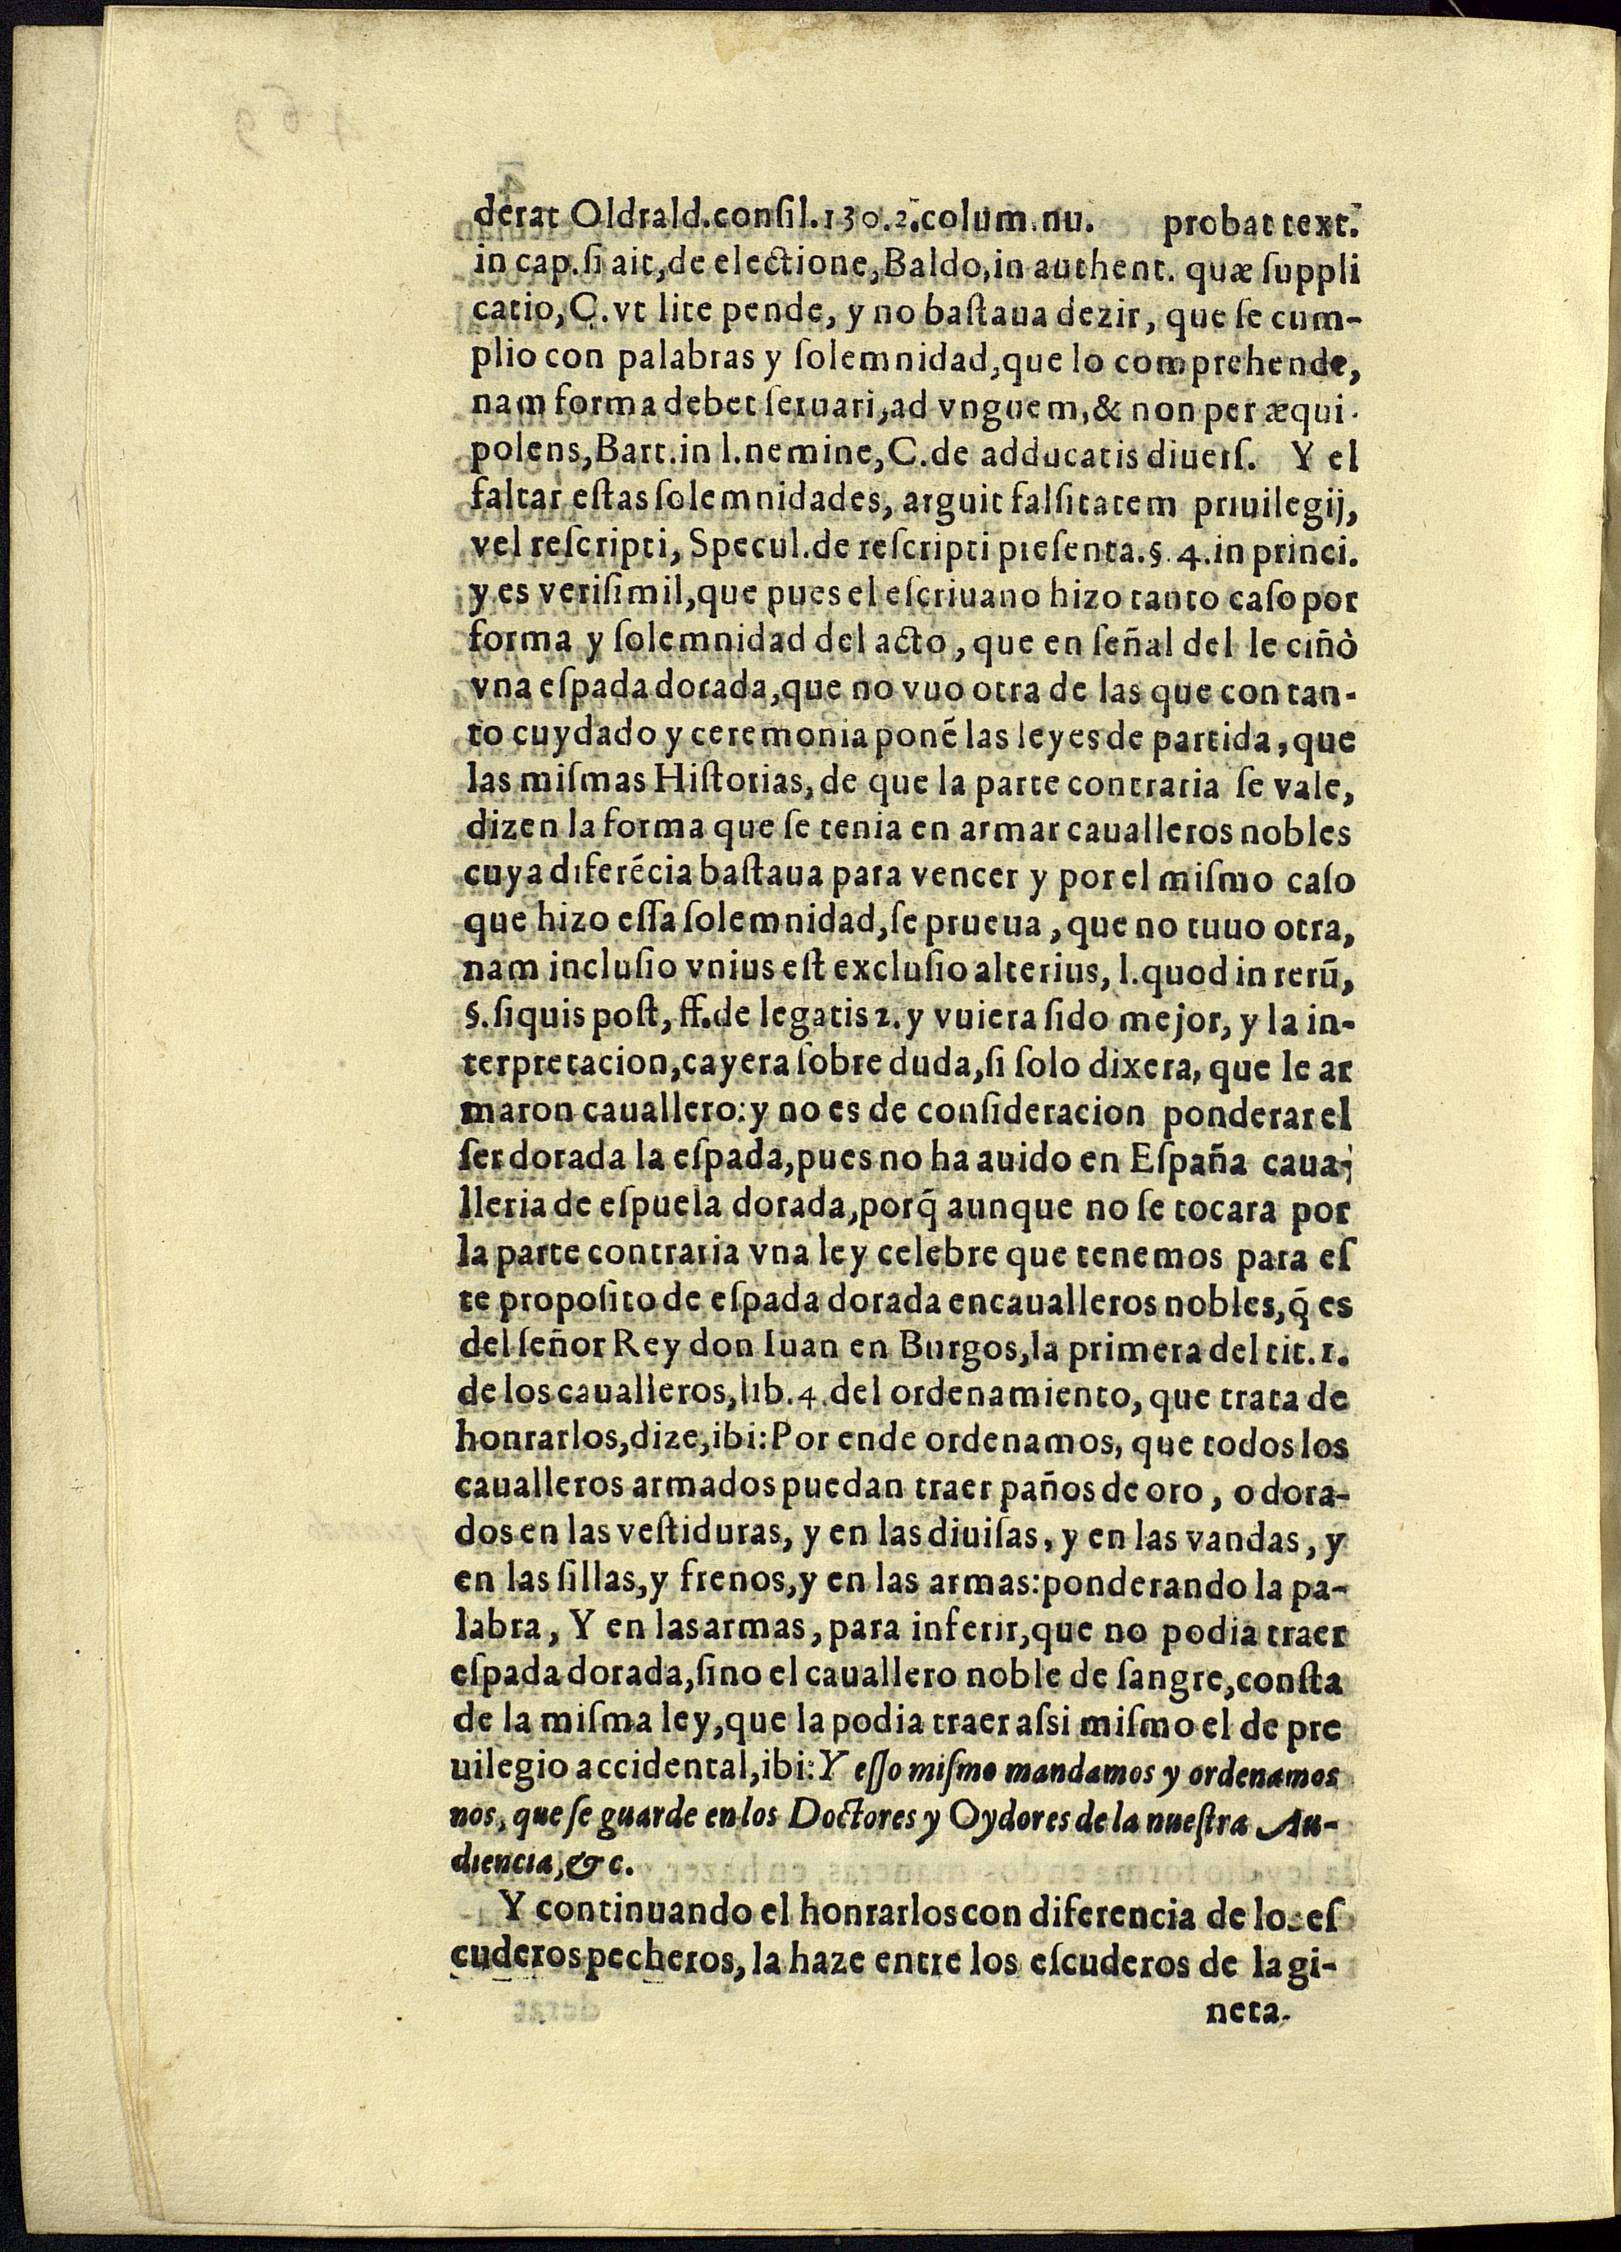 derat Oldrald.conſil.130.2.colum.nu. probat text.
in cap.ſi ait,de electione,Baldo,in authent. quæ ſuppli
catio,C.vt lite pende, y no baſtaua dezir, que ſe cum-
plio con palabras y ſolemnidad,que lo comprehende,
nam forma debet ſeruari,ad vnguem,& non per æqui-
polens,Bart.in l.nemine,C.de adducatis diuerſ. Y el
faltar eſtas ſolemnidades, arguit falſitatem priuilegij,
vel reſcripti, Specul.de reſcripti preſenta.§.4.in princi.
y es veriſimil,que pues el eſcriuano hizo tanto caſo por
forma y ſolemnidad del acto, que en ſeñal del le ciñò
vna eſpada dorada,que no vuo otra de las que con tan-
to cuydado y ceremonia ponẽ las leyes de partida, que
las miſmas Hiſtorias, de que la parte contraria ſe vale,
dizen la forma que ſe tenia en armar caualleros nobles
cuya diferẽcia baſtaua para vencer y por el miſmo caſo
que hizo eſſa ſolemnidad,ſe prueua, que no tuuo otra,
nam incluſio vnius eſt excluſio alterius, l.quod in rerũ,
§.ſiquis poſt, ff.de legatis 2. y vuiera ſido mejor, y la in-
terpretacion,cayera ſobre duda,ſi ſolo dixera, que le ar
maron cauallero: y no es de conſideracion ponderar el
ſer dorada la eſpada,pues no ha auido en Eſpaña caua-
lleria de eſpuela dorada,porq̃ aunque no ſe tocara por
la parte contraria vna ley celebre que tenemos para eſ
te propoſito de eſpada dorada encaualleros nobles,q̃ es
del ſeñor Rey don Iuan en Burgos,la primera del tit.1.
de los caualleros,lib.4.del ordenamiento, que trata de
honrarlos,dize,ibi:Por ende ordenamos, que todos los
caualleros armados puedan traer paños de oro, o dora-
dos en las veſtiduras, y en las diuiſas, y en las vandas, y
en las ſillas,y frenos,y en las armas:ponderando la pa-
labra, Y en las armas, para inferir,que no podia traer
eſpada dorada,ſino el cauallero noble de ſangre,conſta
de la miſma ley,que la podia traer aſsi miſmo el de pre
uilegio accidental,ibi:Y eſſo miſmo mandamos y ordenamos
nos, que ſe guarde en los Doctores y Oydores de la nueſtra Au-
diencia,&c.
Y continuando el honrarlos con diferencia de los eſ
cuderos pecheros, la haze entre los eſcuderos de la gi-
neta.